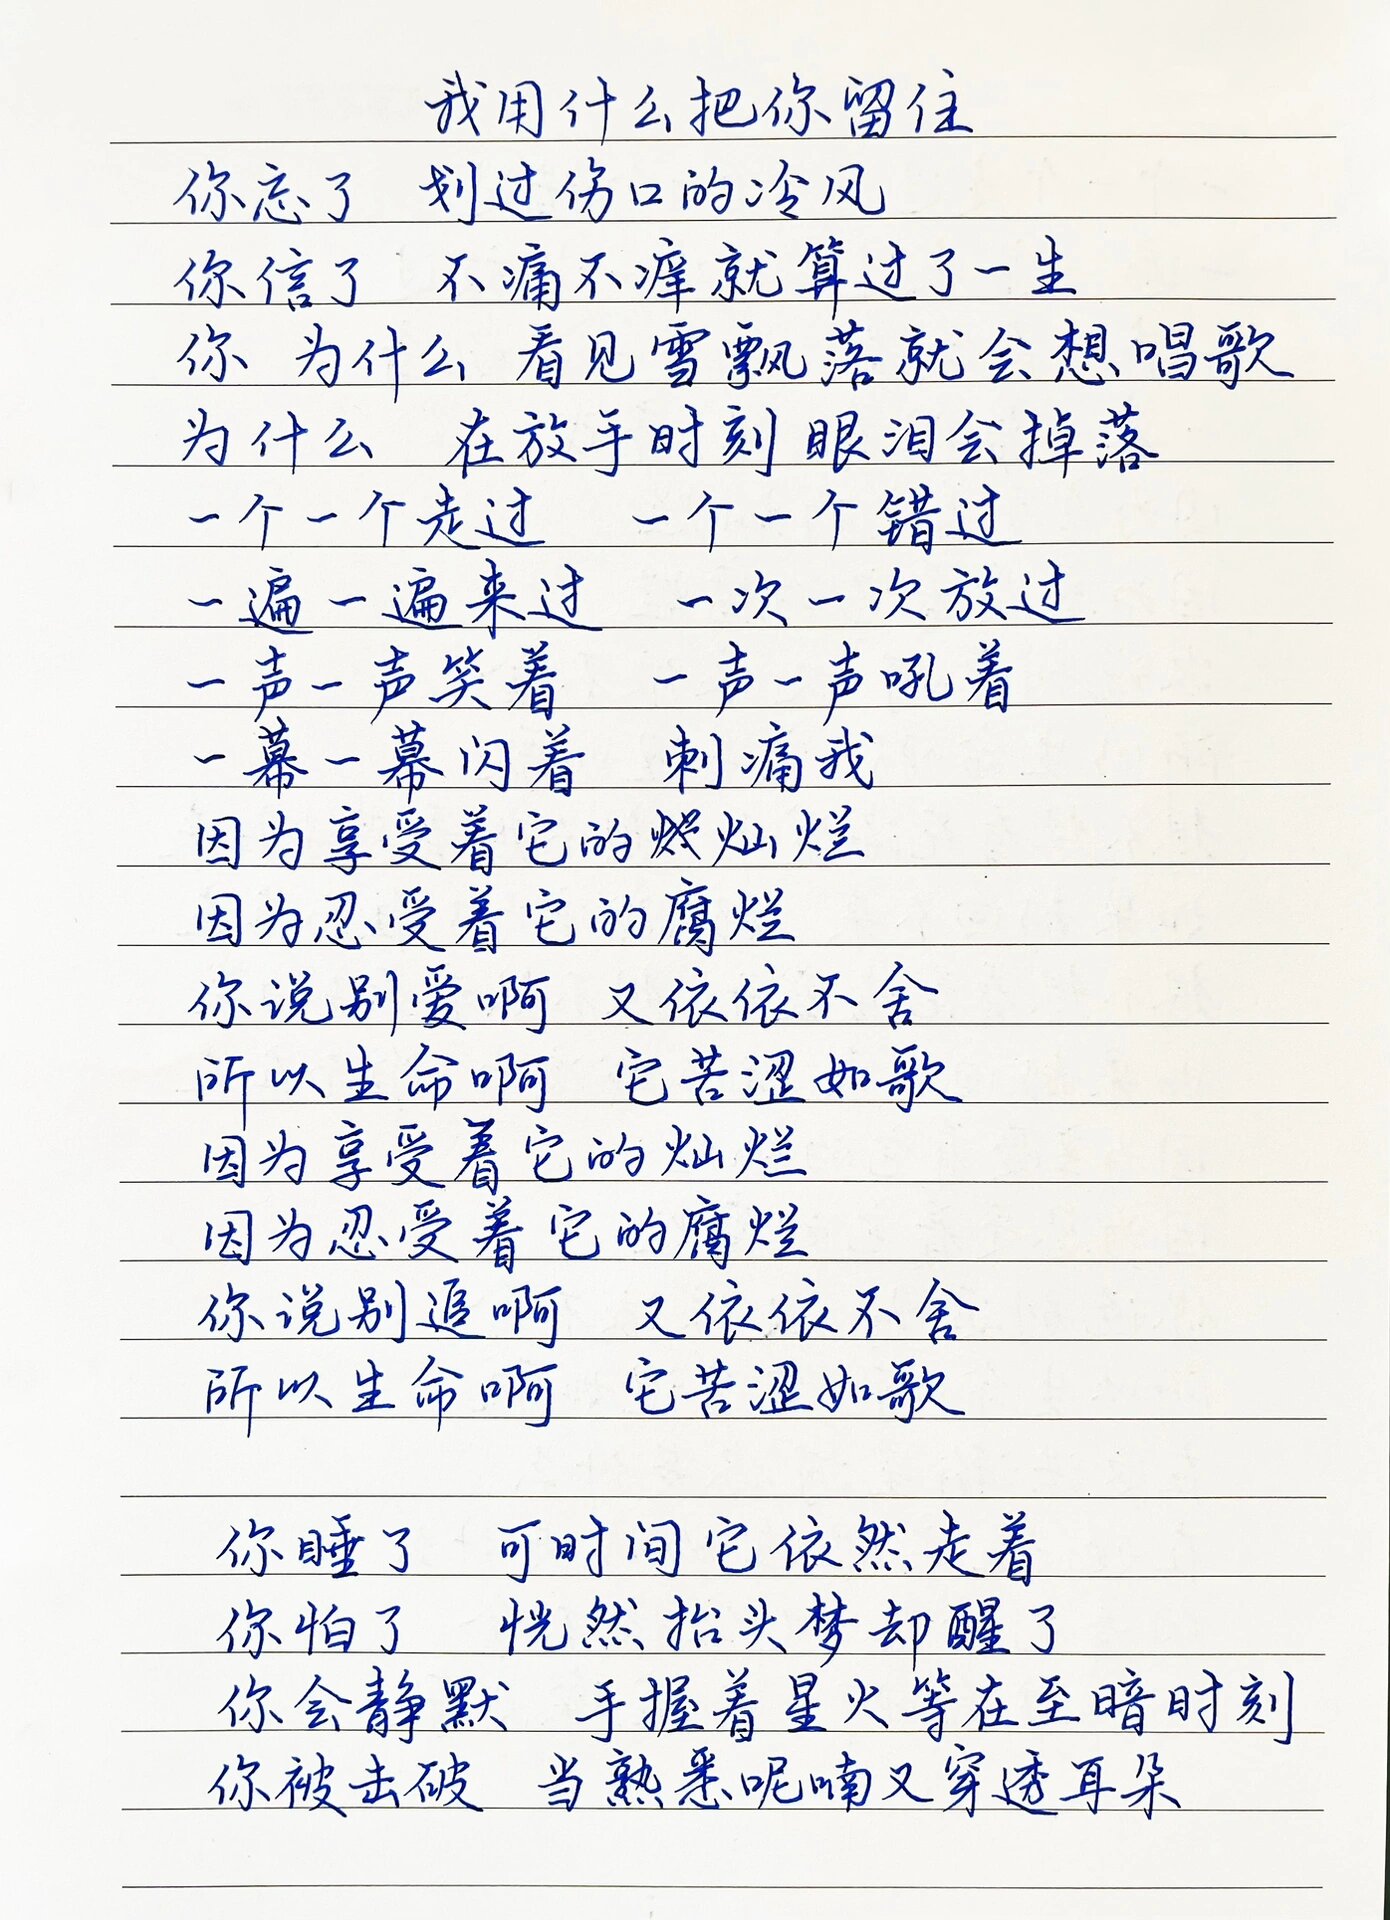 我用什么把你留住
你忘了 划过伤口的冷风
你信了 不痛不痒就算过了一生
你 为什么 看见雪飘落就会想唱歌
为什么 在放手时刻眼泪会掉落
一个一个走过 一个一个错过
一遍一遍来过 一次一次放过
一声一声笑着 一声一声吼着
一幕一幕闪着 刺痛我
因为享受着它的灿烂
因为忍受着它的腐烂
你说别爱啊 又依依不舍
所以生命啊 它苦涩如歌
因为享受着它的灿烂
因为忍受着它的腐烂
你说别追啊 又依依不舍
所以生命啊 它苦涩如歌
你睡了 可时间它依然走着
你怕了 恍然抬头梦却醒了
你会静默 手握着星火等在至暗时刻
你被击破 当熟悉呢喃又穿透耳朵